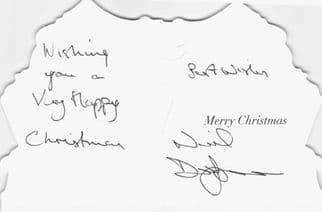 Wishing
you a
Very Happy
Christmas
Best Wishes
Merry Christmas
Neil